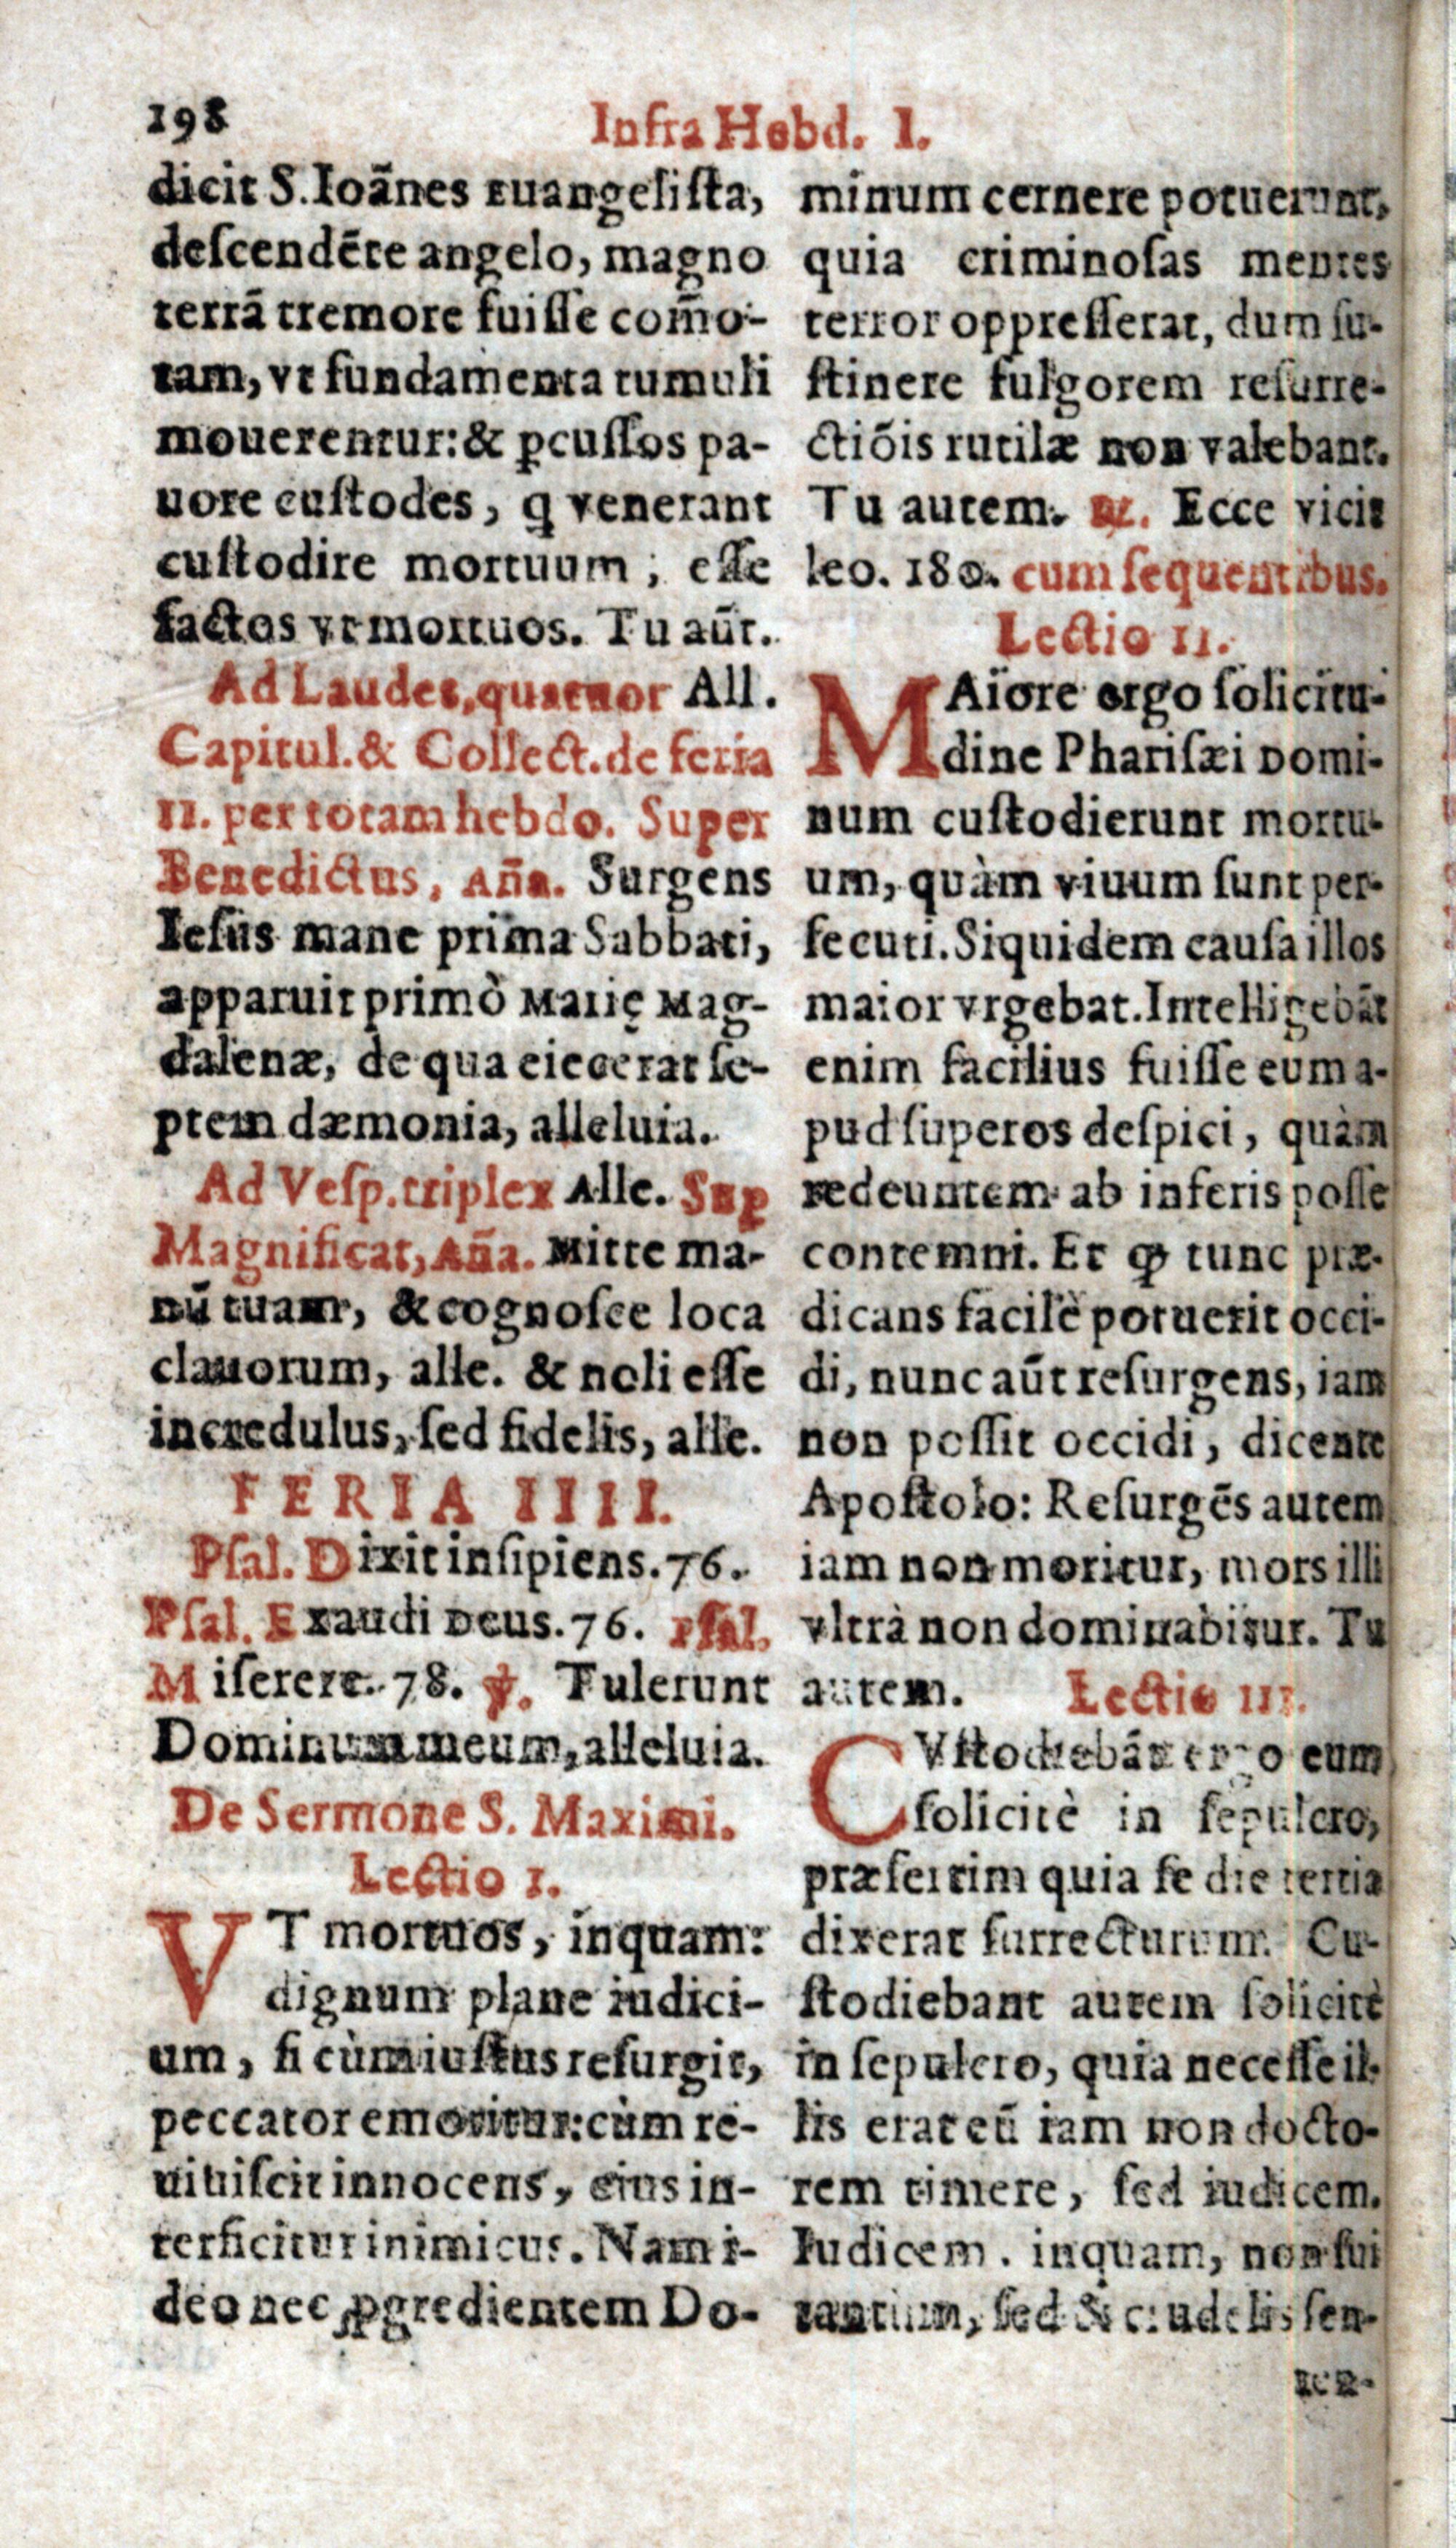 198
Infra Hebd. I.
dicit S. Ioãnes euangelista,
descendẽte angelo, magno
terrã tremore fuisse com̃o-
tam, vt fundamenta tumuli
mouerentur: & ꝑcussos pa-
uore custodes, q venerant
custodire mortuum; esse
factos vt mortuos. Tu aũt.
Ad Laudes, quatuor All.
Capitul. & Collect. de feria
II. per totam hebdo. Super
Benedictus, Añа. Surgens
Iesus mane prima Sabbati,
apparuit primò Marię Mag-
dalenæ, de qua eiecerat se-
ptem dæmonia, alleluia.
Ad Vesp. triplex Alle. Suꝑ
Magnificat, Aña. Mitte ma-
nũ tuam, & cognosce loca
clauorum, alle. & noli esse
incredulus, sed fidelis, alle.
FERIA IIII.
Psal. Dixit insipiens. 76.
Psal. Exaudi Deus. 76. Psal.
Miserere. 78. ℣. Tulerunt
Dominum meum, alleluia.
De Sermone S. Maximi.
Lectio I.
VT mortuos, inquam:
dignum plane iudici-
um, si cùm iustus resurgit,
peccator emoritur: cùm re-
uiuiscit innocens, eius in-
terficitur inimicus. Nam i-
deo nec ꝓgredientem Do-
minum cernere potuerunt,
quia criminosas mentes
terror oppresserat, dum su-
stinere fulgorem resurre-
ctiõis rutilæ non valebant.
Tu autem. ℟. Ecce vicit
leo. 180. cum sequentibus.
Lectio II.
MAiore ergo solicitu-
dine Pharisæi Domi-
num custodierunt mortu-
um, quàm viuum sunt per-
secuti. Siquidem causa illos
maior vrgebat. Intelligebãt
enim facilius fuisse eum a-
pud superos despici, quàm
redeuntem ab inferis posse
contemni. Et ꝙ tunc præ-
dicans facilè potuerit occi-
di, nunc aũt resurgens, iam
non possit occidi, dicente
Apostolo: Resurgẽs autem
iam non moritur, mors illi
vltrà non dominabitur. Tu
autem. Lectio III.
CVstodiebãt ergo eum
solicitè in sepulcro,
præsertim quia se die tertia
dixerat surrecturum. Cu-
stodiebant autem solicitè
in sepulcro, quia necesse il-
lis erat eũ iam non docto-
rem timere, sed iudicem.
Iudicem. inquam, non sui
tantum, sed & crudelis sen-